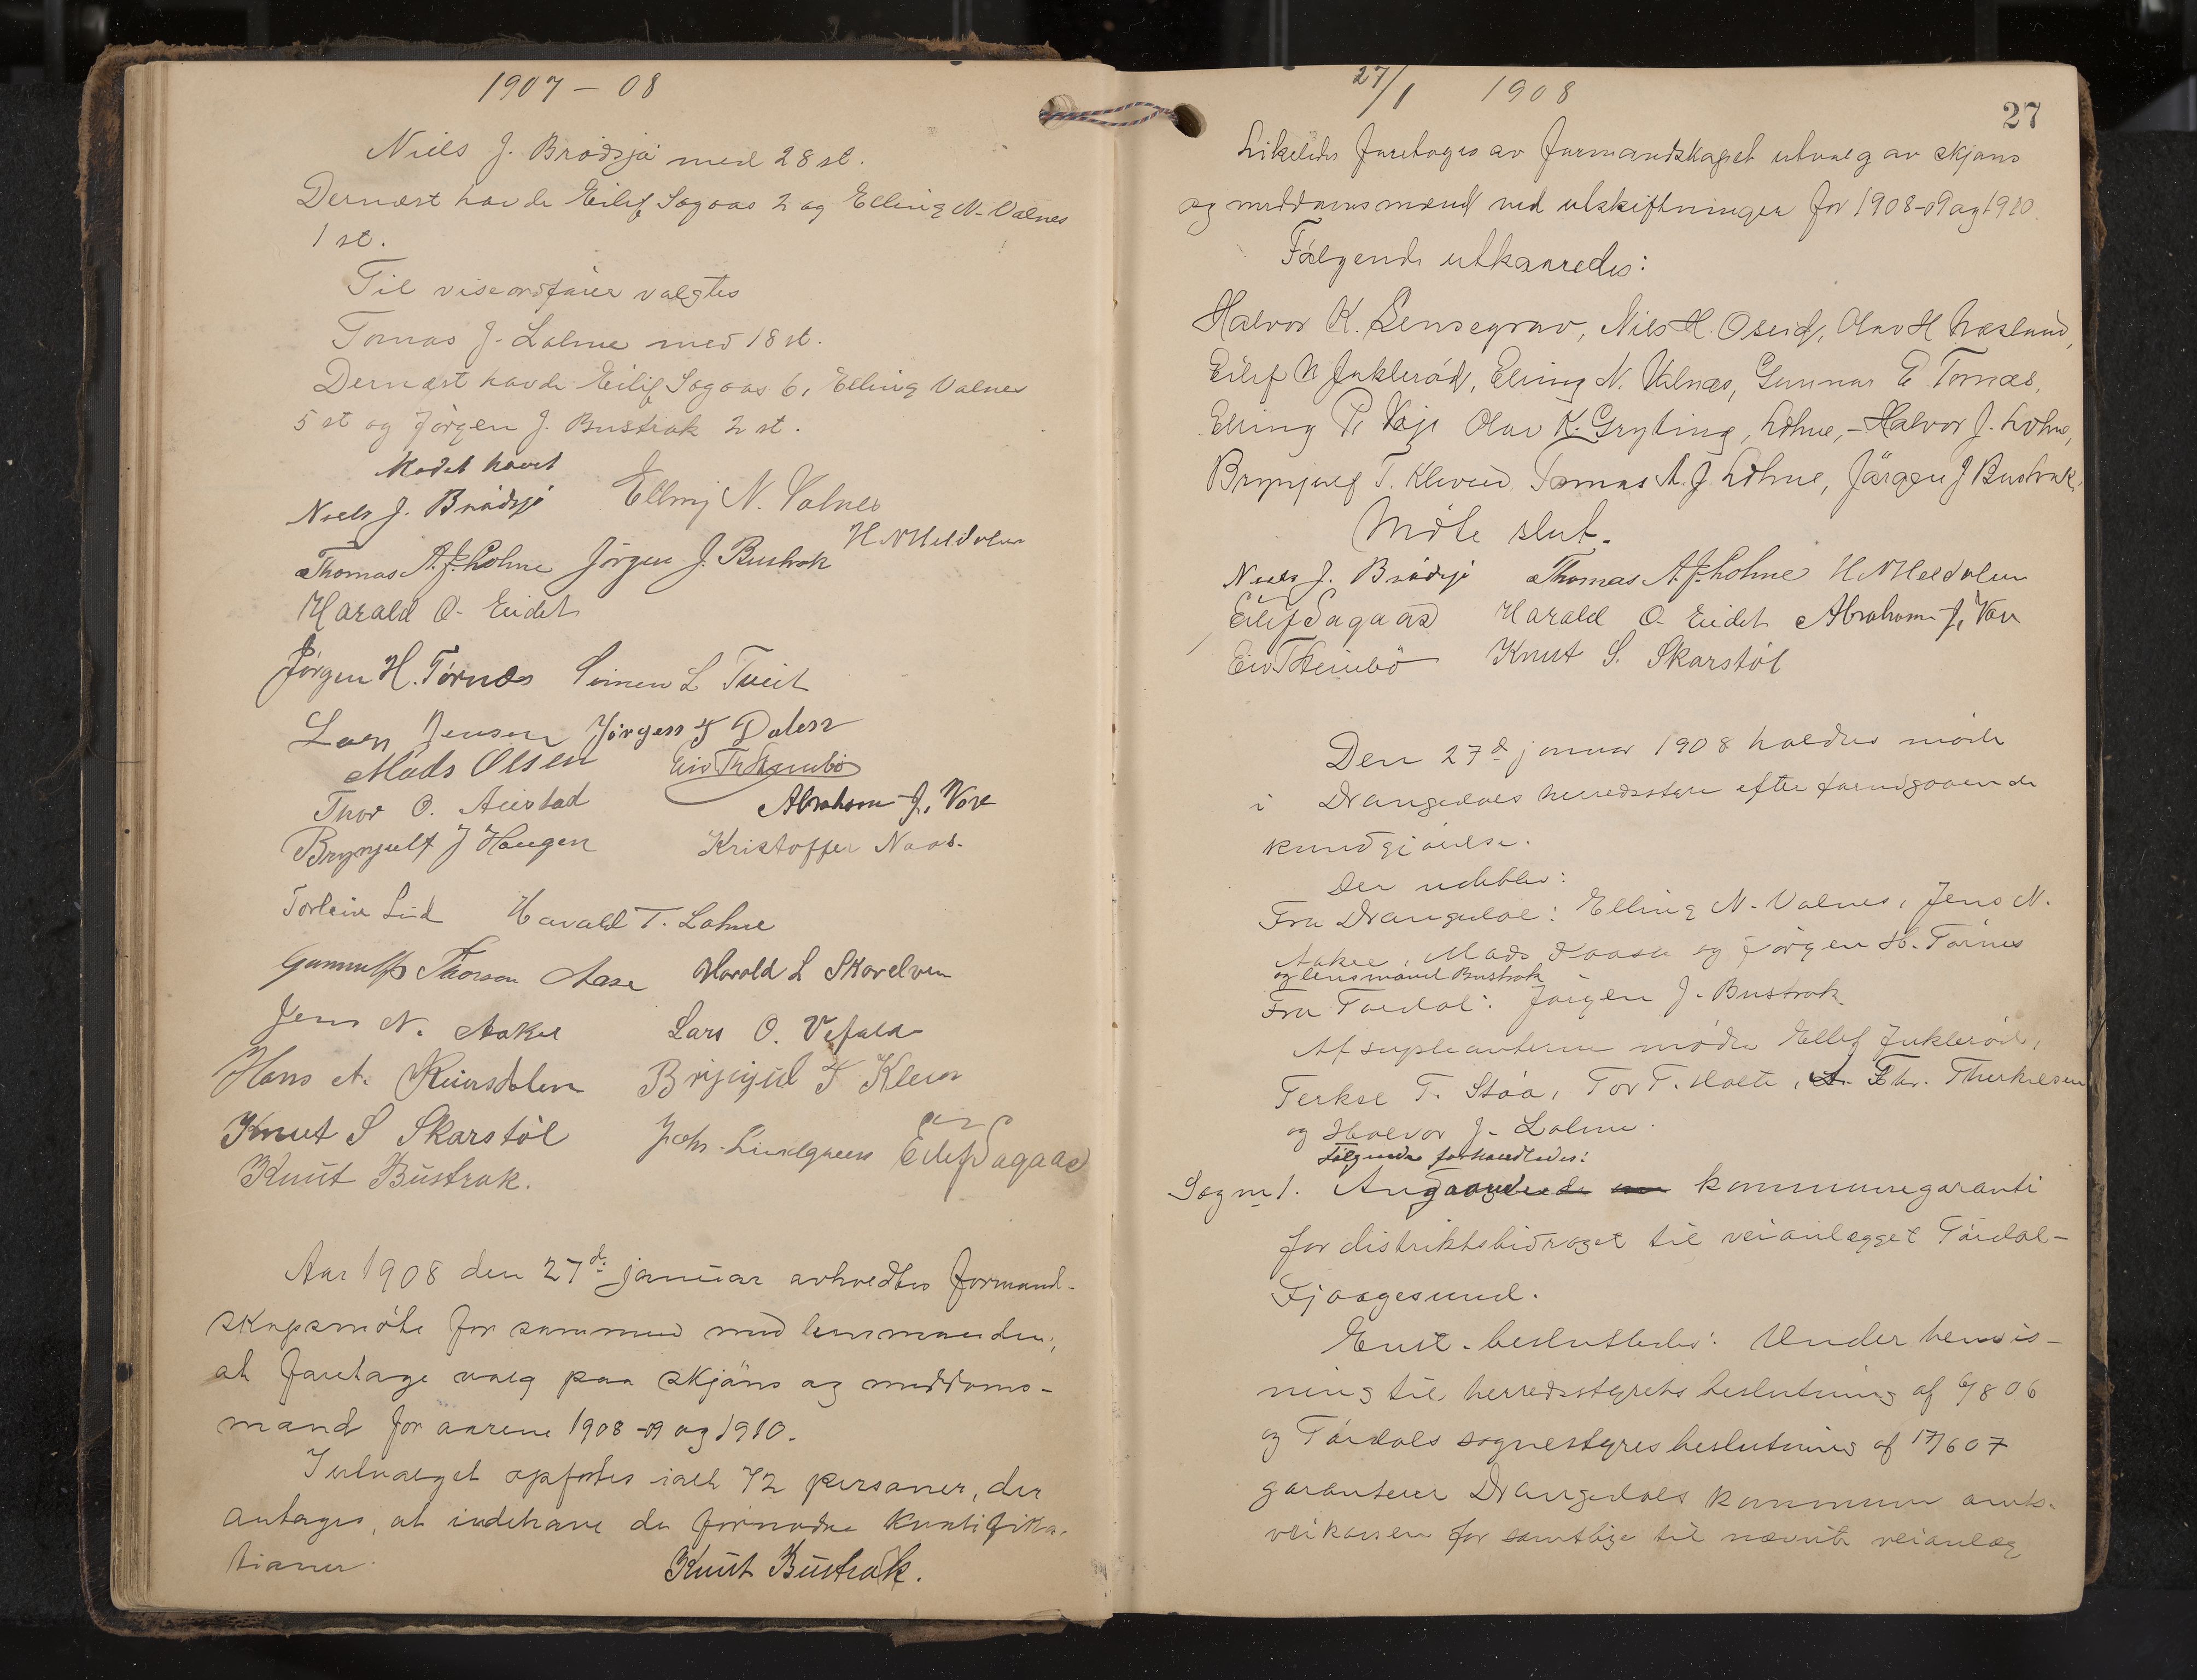 1907 – 08
Niels J. Brødsjø med 28 st.
Dernæst havde Eilif Sogaas 2 og Elling N. Valnes
1 st.
Til viseordfører valgtes
Tomas J. Lohne med 18 st.
Dernæst havde Eilif Sogaas 6, Elling Valnes
5 st og Jørgen J. Bustrak 2 st.
Mødet hævet
Niels J. Brødsjø Elling N. Valnes
H N Heldalen
Thomas A. J. Lohne Jörgen J. Bustrak
Harald O. Eidet
Jørgen H. Tørnæs Simen L Tveit
Lars Jensen Jörgen T Dalen
Mads Olsen Eiv Th Stenebö
Thor O. Aeistad Abraham J. Vøre
Brynjulf J Haugen Kristoffer Naas.
Torleiv Lid Havald T. Lohne
Gunnulf Thorson Aase Harald L Skarelven
Jens N. Aakre Lars O. Vefald
Hans A. Reiersdalen Brynjul T Kleven
Knut S Skarstøl Joh. Lindgreen Eilif Sagaas
Knut Bustrak.
Aar 1908 den 27de januar avholdtes formand-
skapsmøte for sammen med lensmanden,
at foretage valg paa skjøns og meddoms-
mænd for aarene 1908-09 og 1910.
I utvalget opførtes ialt 72 personer, der
antages, at indehave de fornødne kvalifika-
tioner.
Knut Bustrak.
27/1 1908
27
Likeledes foretages av formandskapet utvalg av skjøns
og meddomsmænd ved utskiftninger for 1908-09 og 1910.
Følgende utkaaredes:
Halvor K. Sensegrav, Niels H. Oseid, Olav H. Næsland,
Eilef N Juklerød, Elling N. Valnæs, Gunnar E. Tornæs,
Elling P. Voje Olav K. Gryting, Lohne, - Halvor J. Lohne,
Brynjulf T. Kleven, Tomas A. J. Lohne, Jørgen J Bustrak.
Møte slut.
Niels J. Brødsjø Thomas A. J. Lohne H N Heldalen
Eilif Sagaas Harald O. Eidet Abraham J. Vøre
Eiv T Stenebö Knut S. Skarstøl
Den 27de januar 1908 holdtes møde
i Drangedals herredsstyre efter forudgaaende
kundgjørelse.
Der udeblev:
Fra Drangedal: Elling N. Valnes, Jens N.
Aakre, Mads Kaasa og Jørgen H. Tørnes
og lensmand Bustrak
Fra Tørdal: Jørgen J. Bustrak
Af supleanterne mødte Ellef Juklerød,
Terkse T. Støa, Tor T. Holte, Chr. Therkilsen
og Halvor J. Lohne.
Følgende forhandledes:
Sag nr 1. Angaaende kommunegaranti
for distriktsbidraget til veianlægget Tørdal-
Fjaagesund.
Enst. besluttedes: Under henvis-
ning til herredsstyrets beslutning af 6/8 06
og Tørdals sognestyres beslutning af 17/6 07
garanterer Drangedals kommune amts-
veikassen for samtlige til nævnte veianlæg